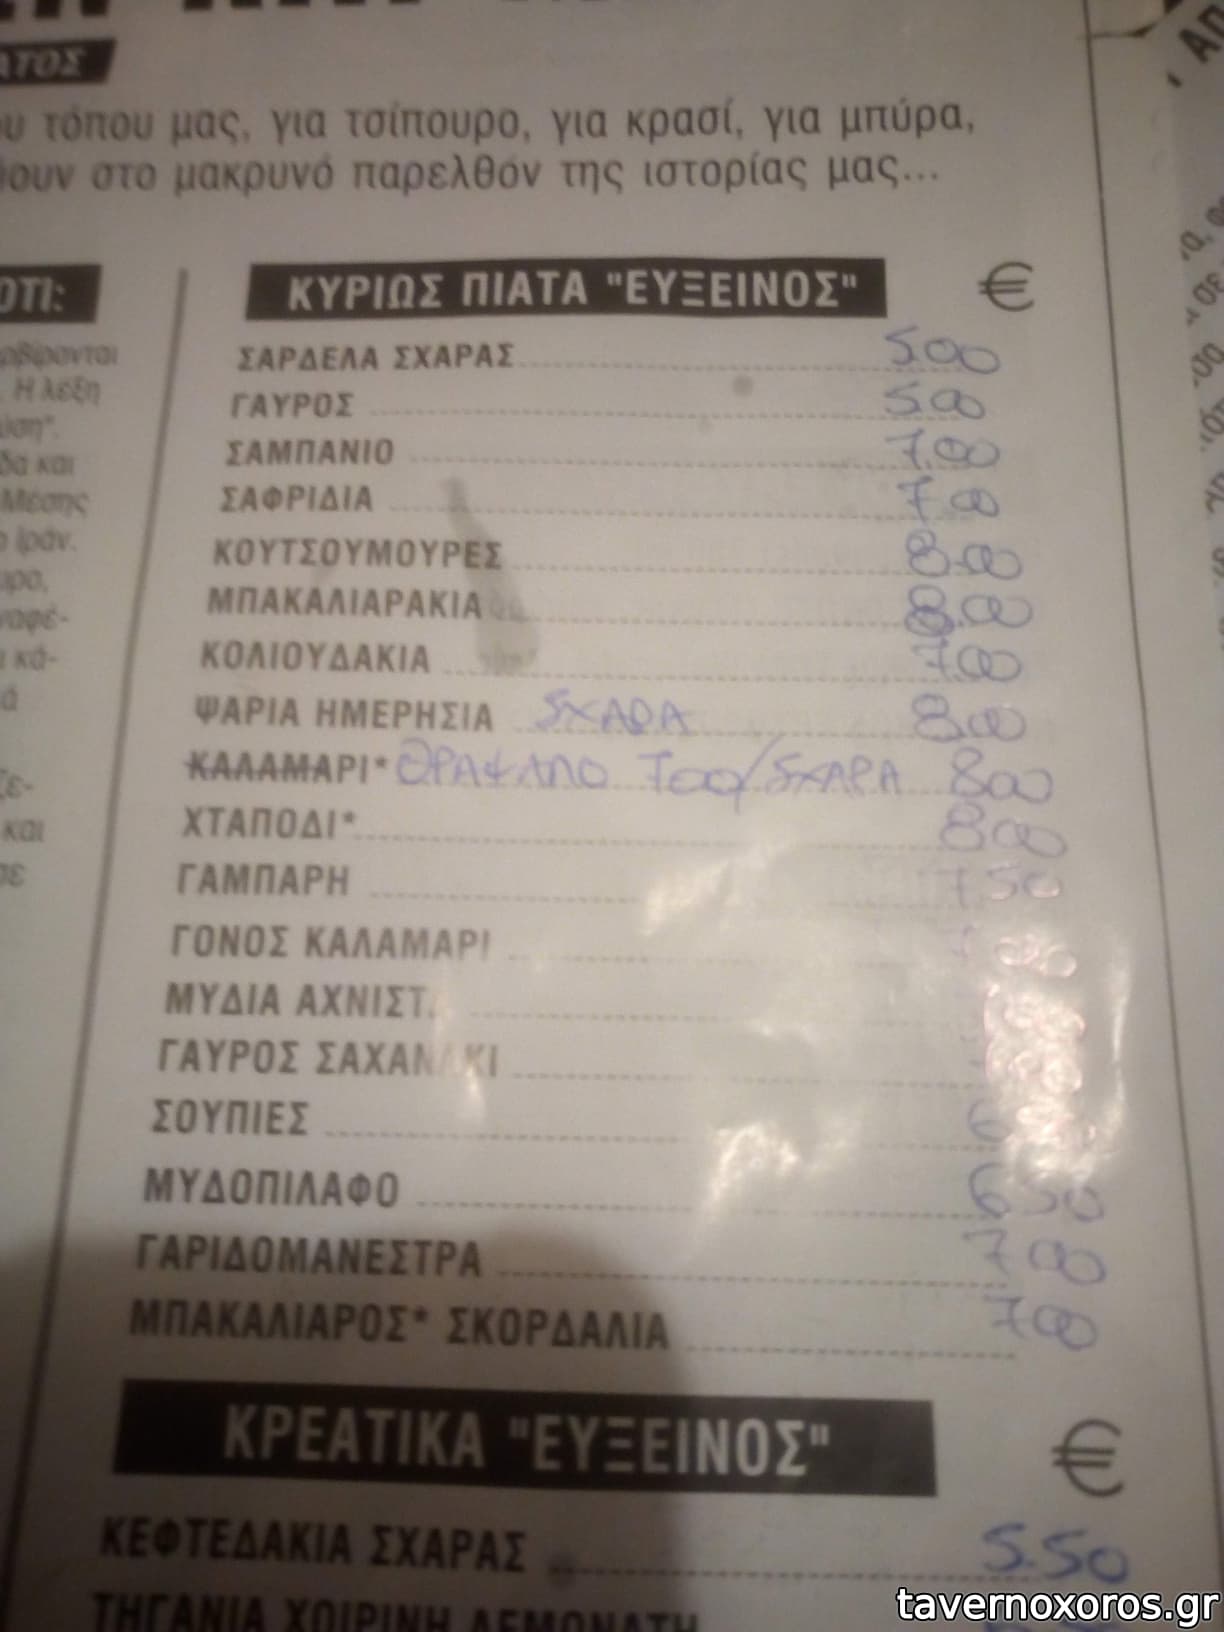 ΑΤΟΣ
τόπου μας, για τσίπουρο, για κρασί, για μπύρα,
στο μακρυνό παρελθόν της ιστορίας μας...
ΟΤΙ:
Η λέξη
και
Μέσης
Ιράν.
και
ΚΥΡΙΩΣ ΠΙΑΤΑ "ΕΥΞΕΙΝΟΣ" €
ΣΑΡΔΕΛΑ ΣΧΑΡΑΣ 5.00
ΓΑΥΡΟΣ 5.00
ΣΑΜΠΑΝΙΟ 7.00
ΣΑΦΡΙΔΙΑ 7.00
ΚΟΥΤΣΟΥΜΟΥΡΕΣ 8.00
ΜΠΑΚΑΛΙΑΡΑΚΙΑ 8.00
ΚΟΛΙΟΥΔΑΚΙΑ 7.00
ΨΑΡΙΑ ΗΜΕΡΗΣΙΑ ΣΧΑΡΑ 8.00
ΚΑΛΑΜΑΡΙ* ΘΡΑΨΑΛΟ 700/ΣΧΑΡΑ 800
ΧΤΑΠΟΔΙ* 800
ΓΑΜΠΑΡΗ 750
ΓΟΝΟΣ ΚΑΛΑΜΑΡΙ
ΜΥΔΙΑ ΑΧΝΙΣΤ.
ΓΑΥΡΟΣ ΣΑΧΑΝΑΚΙ
ΣΟΥΠΙΕΣ
ΜΥΔΟΠΙΛΑΦΟ 650
ΓΑΡΙΔΟΜΑΝΕΣΤΡΑ 700
ΜΠΑΚΑΛΙΑΡΟΣ* ΣΚΟΡΔΑΛΙΑ 700
ΚΡΕΑΤΙΚΑ "ΕΥΞΕΙΝΟΣ" €
ΚΕΦΤΕΔΑΚΙΑ ΣΧΑΡΑΣ 5.50
ΤΗΓΑΝΙΑ ΧΟΙΡΙΝΗ ΛΕΜΟΝΑΤΗ
tavernoxoros.gr